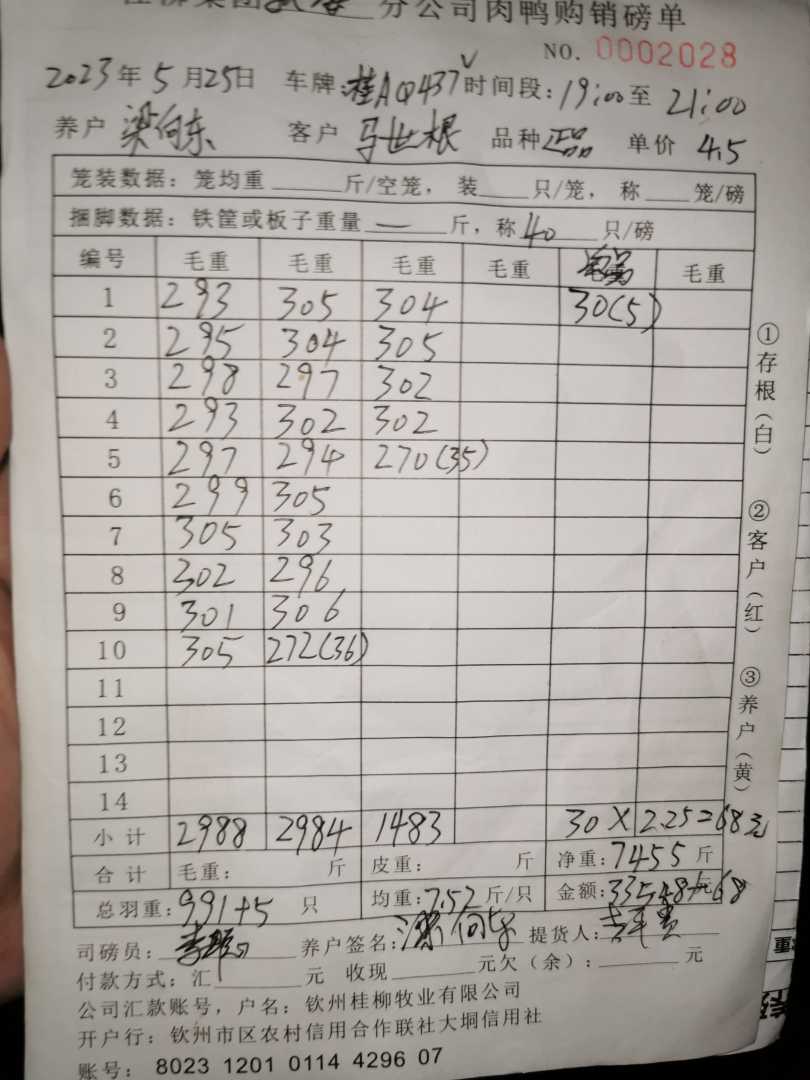 分公司肉鸭购销磅单
NO. 0002028
2023年5月25日 车牌:桂A 437 时间段:19:00至21:00
养户 梁向东 客户 马世根 品种 正品 单价 4.5
笼装数据：笼均重____斤/空笼，装____只/笼，称____笼/磅
捆脚数据：铁筐或板子重量 — 斤，称 40 只/磅
编号 毛重 毛重 毛重 毛重 毛重
1 293 305 304 30(5)
2 295 304 305
3 298 297 302
4 293 302 302
5 297 294 270(35)
6 299 305
7 305 303
8 302 296
9 301 306
10 305 272(36)
11
12
13
14
小计 2988 2984 1483 30×2.25=68元
合计 毛重: 斤 皮重: 斤 净重:7455斤
总羽重:991+5 只 均重:7.52斤/只 金额:33548+68元
司磅员: 养户签名:梁向东 提货人:
付款方式：汇____元 收现____元欠（余）:____元
公司汇款账号，户名：钦州桂柳牧业有限公司
开户行：钦州市区农村信用合作联社大垌信用社
账号：8023 1201 0114 4296 07
①存根（白）
②客户（红）
③养户（黄）